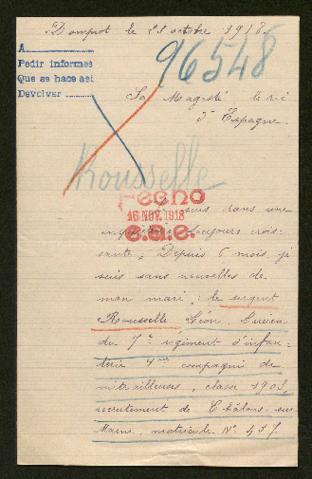 Dompcot le 23 octobre 1918.
A
Pedir informes
Que se hace asi
Devolver
96548
Sa Magesté le roi
d'Espagne.
Rousselle
FECHO
16 NOV. 1918
e.a.e.
suis dans une
inquiétude toujours crois-
sante; Depuis 5 mois, je
suis sans nouvelles de
mon mari; le sergent
Rousselle, Léon, Lucien
du 7me régiment d'infan-
terie 4me compagnie de
mitrailleuses, classe 1903,
recrutement de Châlons-sur-
Marne, matricule N° 437.